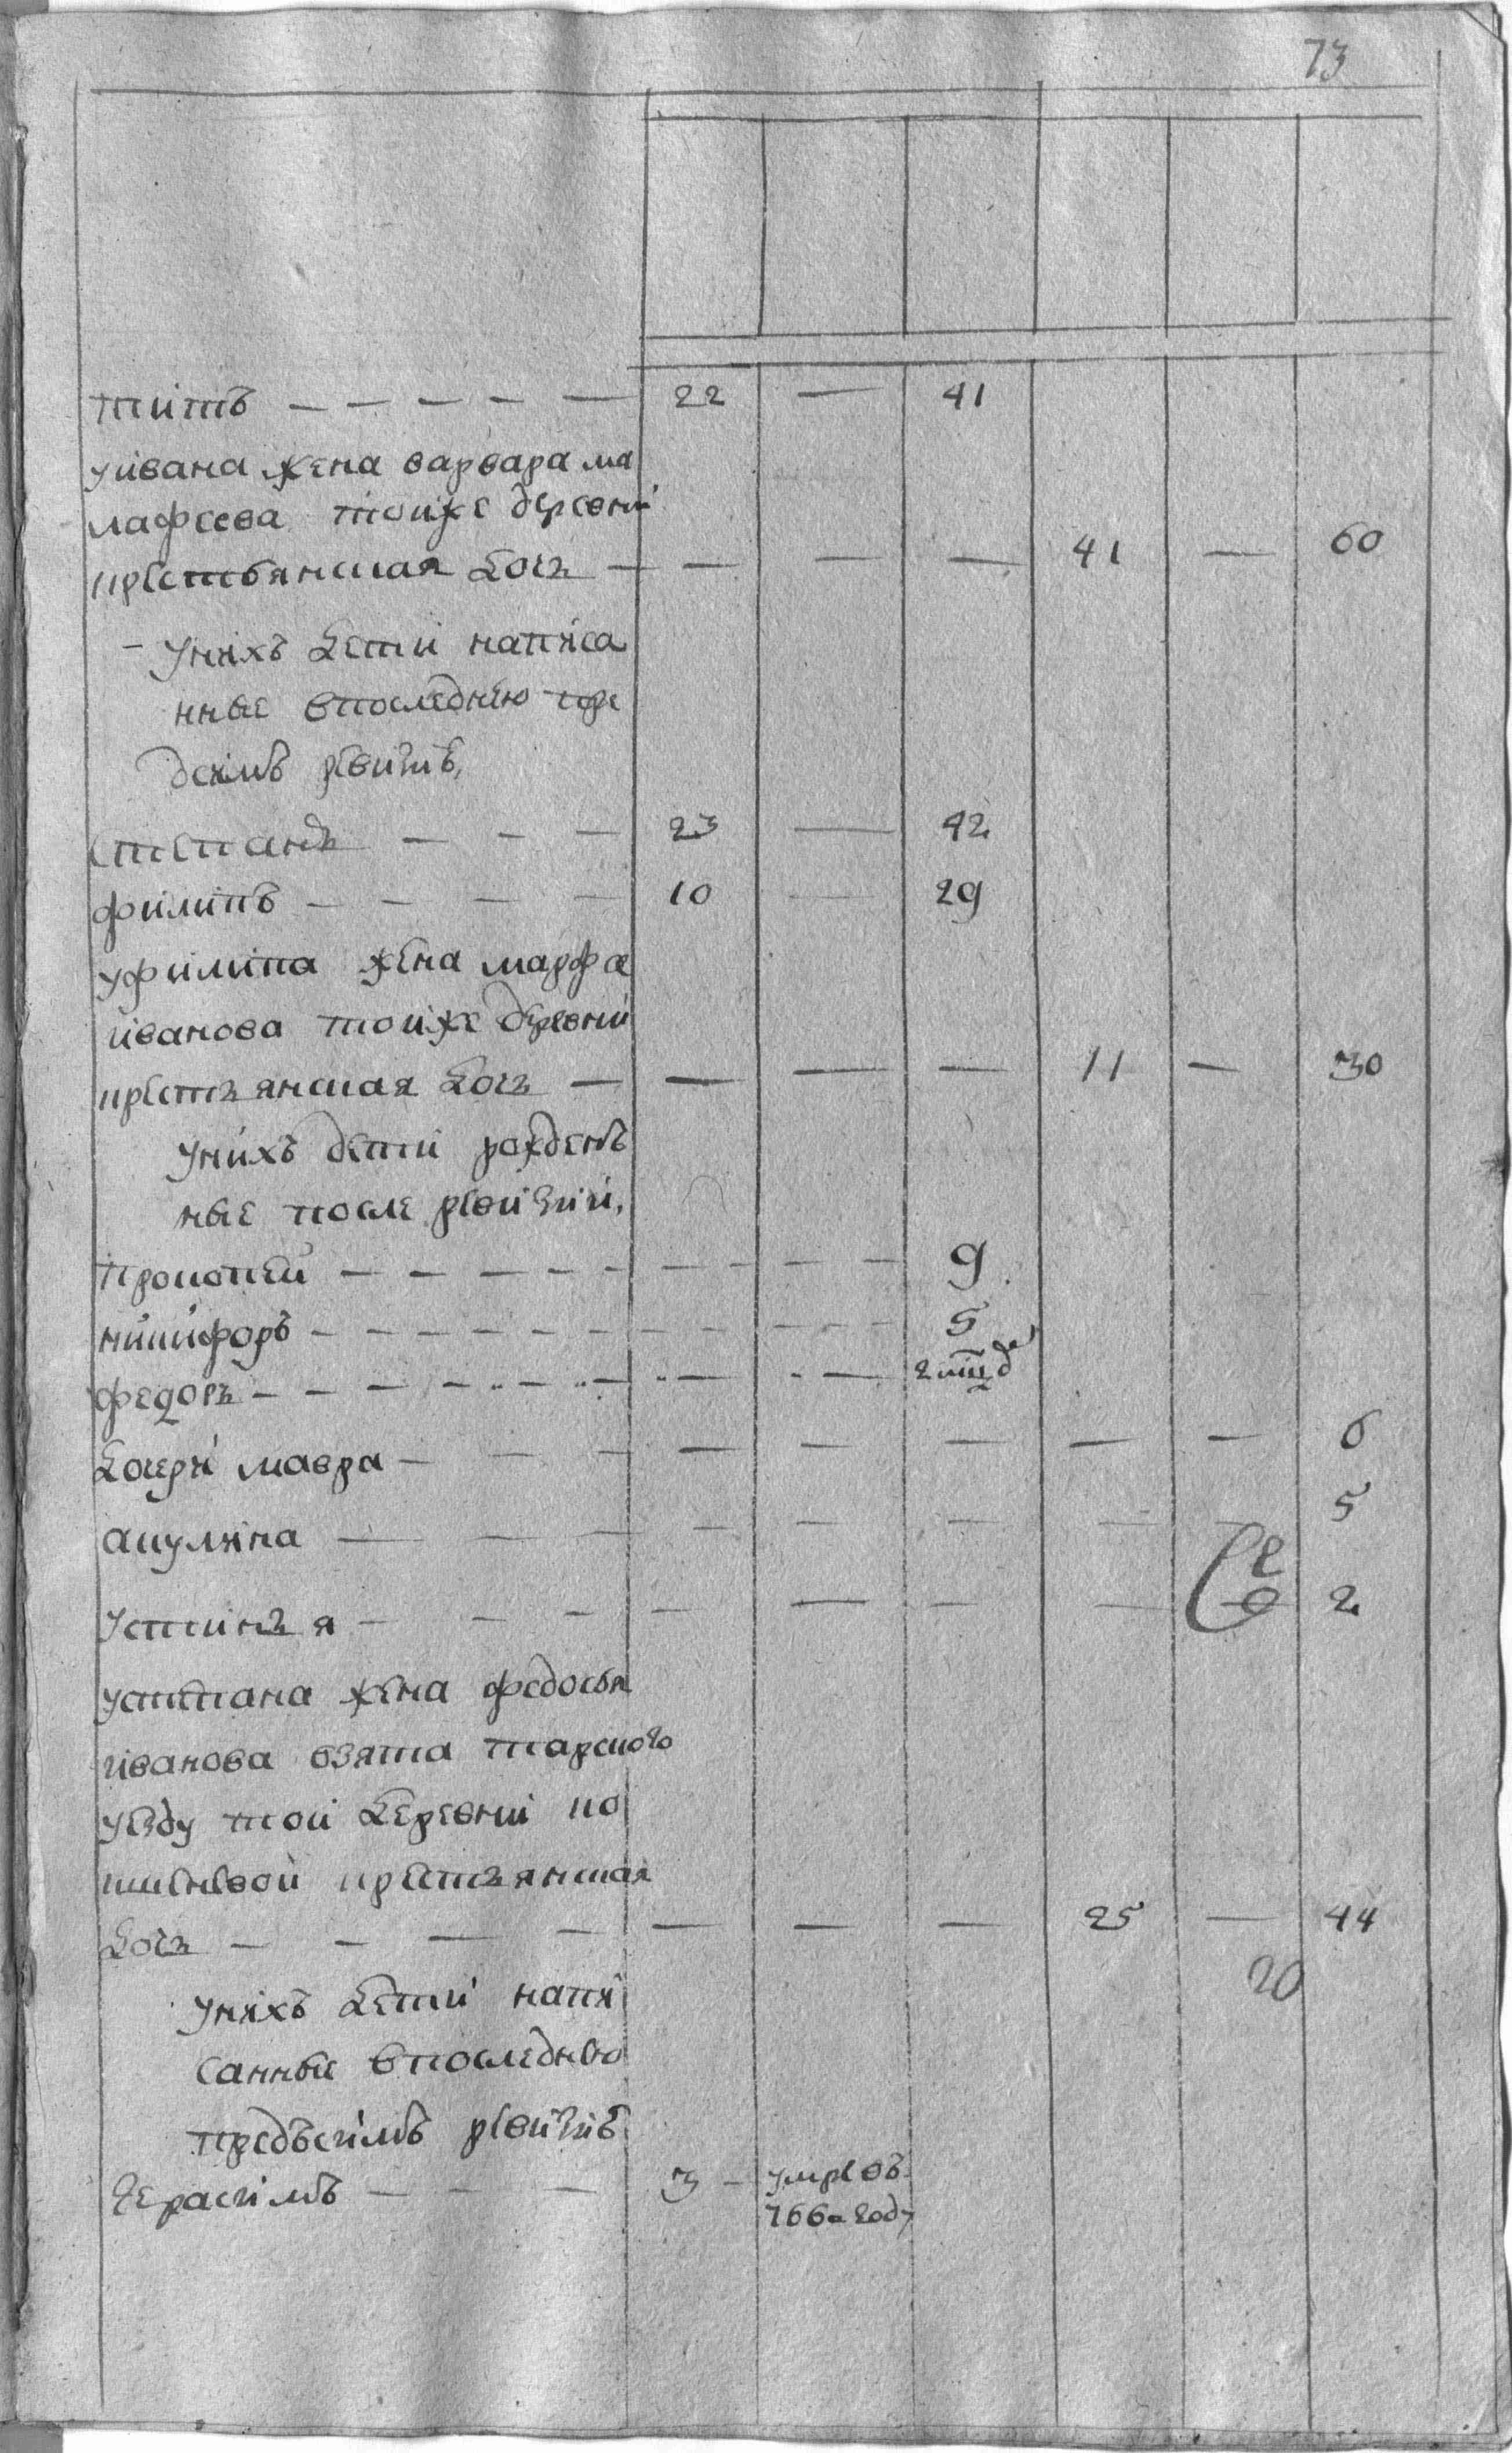 73
титъ — — — — — 22 — 41
уивана жена варвара ма
лафеева тоиже деревни
крестьянская дочь — — — — 41 — 60
– унихъ дети написа
нные впоследнею пре
дсимъ ревизиъ,
степанъ — — — 23 — 42
филипъ — — — — 10 — 29
уфилипа жена марфа
иванова тоиже деревни
крестьянская дочь — — — — 11 — 30
унихъ дети рожден
ные после ревизии.
прокопеи — — — — — — — — — 9
никифоръ — — — — — — — — — 5
федоръ — — — — — — — — — 2
дочери мавра — — — — — — — — 6
акулина — — — — — — — — 5
устинья — — — — — — — — 2
устепана жена федосья
иванова взята тарского
уезду тои деревни ко
кшеневои крестьянская
дочь — — — — — — — 25 — 44
20
унихъ дети напи
санные впоследнею
предъсимъ ревизиъ
герасимъ — — — 3 – умре въ
766м году